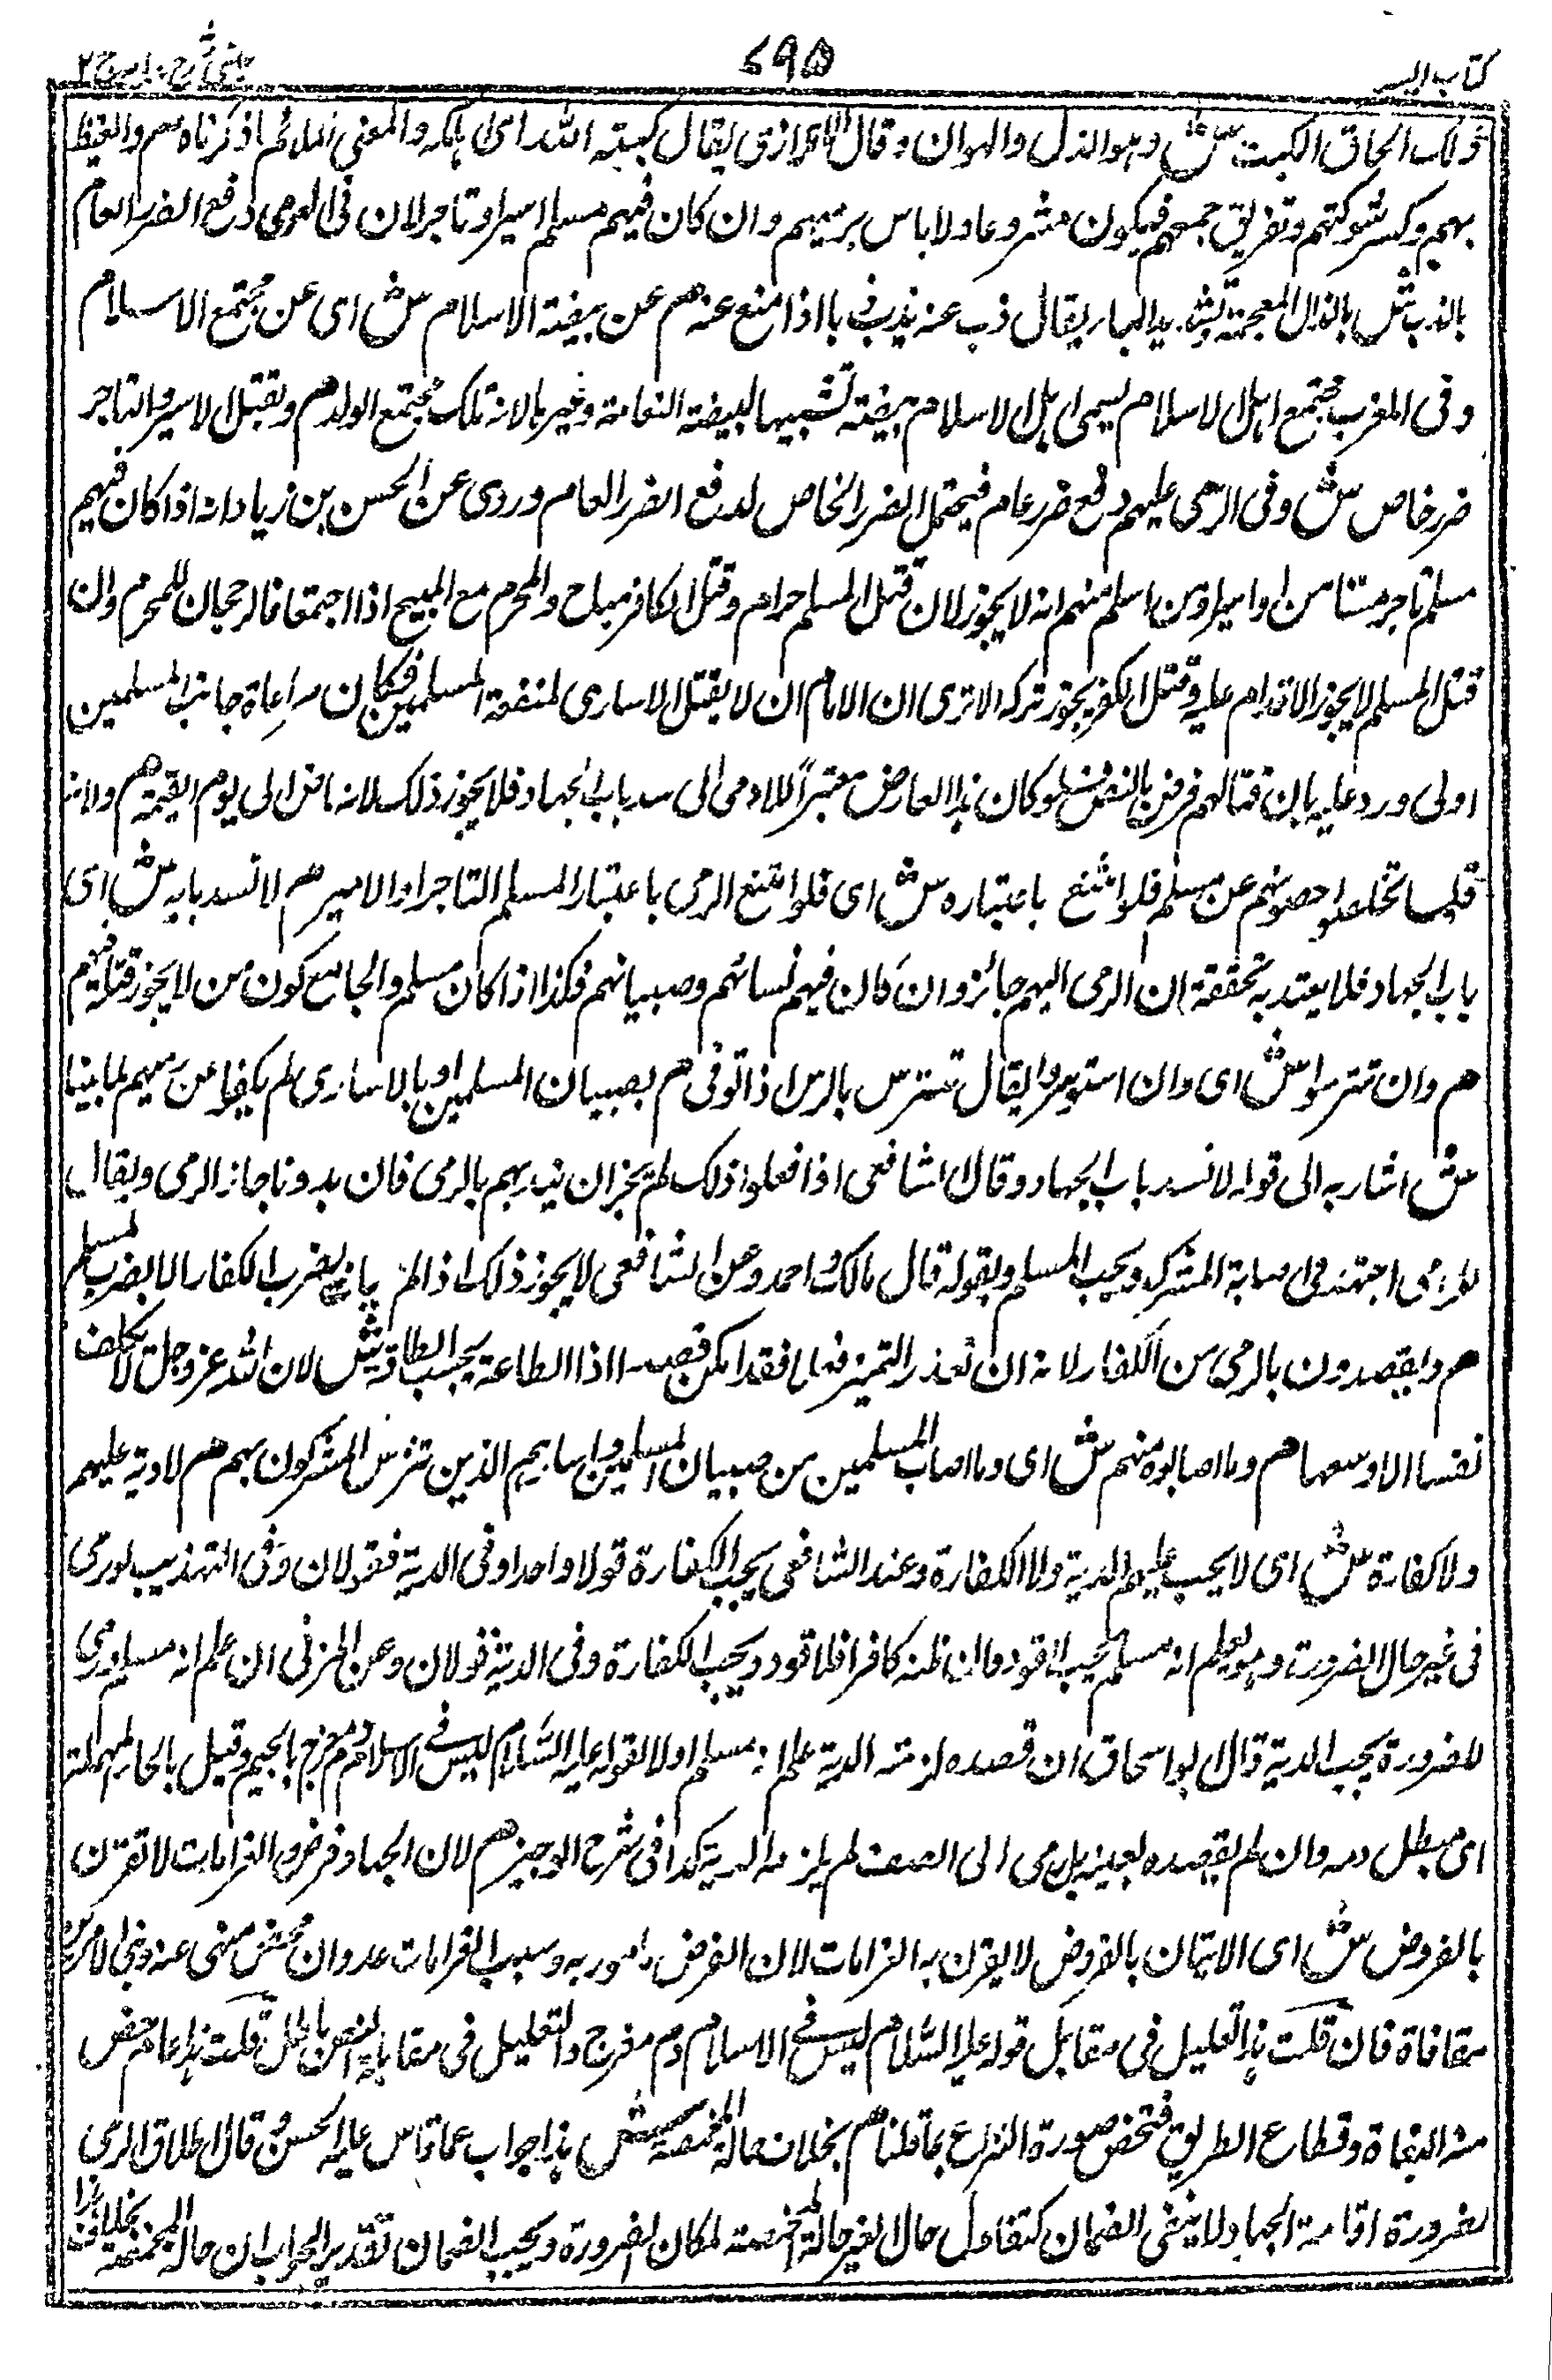 كتاب السير
٦٩٥
ذلك الحاق الكبت ش وهو الذل والهوان وقال الرازى يقال كبته الله اى اهلكه والمعنى الملائم ما ذكرناه م والغيظ
بهم وكسر شوكتهم وتفريق جمعهم فيكون مشروعا ولا باس برميهم وان كان فيهم مسلم اسير او تاجر لان فى الرمى دفع الضرر العام
بالذب ش بالذال المعجمة وتشديد الباء يقال ذب عنه يذب ذبا اذا منع عنه م عن بيضة الاسلام ش اى عن مجتمع الاسلام
وفى المغرب مجتمع اهل الاسلام يسمى اهل الاسلام بيضة تشبيها ببيضة النعامة وغيرها لانه تلك مجتمع الولد م وقتل الاسير والتاجر
ضرر خاص ش وفى الرمى عليهم دفع ضرر عام فيتحمل الضرر الخاص لدفع الضرر العام وروى عن الحسن بن زياد انه اذا كان فيهم
مسلم تاجر مستامن او اسير او من اسلم منهم انه لا يجوز لان قتل المسلم حرام وقتل الكافر مباح والمحرم مع المبيح اذا اجتمعا فالرجحان للمحرم وان
قتل المسلم لا يجوز الاقدام عليه وقتل الكفر يجوز تركه الا ترى ان الامام ان لا يقتل الاسارى لمنفعة المسلمين فكان مراعاة جانب المسلمين
اولى ورد عليه بان قتالهم فرض بالنص فلو كان هذا العارض معتبرا للادمى الى سد باب الجهاد فلا يجوز ذلك لانه ماض الى يوم القيمة م ولانه
قلما تخلو حصونهم عن مسلم فلو امتنع باعتباره ش اى فلو امتنع الرمى باعتبار المسلم التاجر او الاسير م لانسد بابه ش اى
باب الجهاد فلا يعتد به تحققه ان الرمى اليهم جائز وان كان فيهم نسائهم وصبيانهم فكذا اذا كان مسلم والجامع كون من لا يجوز قتله فيهم
م وان تترسوا ش اى وان استتروا يقال تترس بالترس اذا توقى م بصبيان المسلمين او بالاسارى لم يكفوا عن رميهم لما بينا
ش اشار به الى قوله لانسد باب الجهاد وقال الشافعى اذا فعلوا ذلك لم يجز ان نبدءهم بالرمى فان بدونا جاز الرمى ويقال
للرامى اجتهد فى اصابة المشرك ويجب المسلم وبقوله قال مالك واحمد وعن الشافعى لا يجوز ذلك اذا لم يات بضرب الكفار الا بضرب المسلم
م ويقصدون بالرمى من الكفار لانه ان تعذر التميز فعلا فقد امكن قصدا اذا الطاعة بحسب الطاقة ش لان الله عز وجل لا يكلف
نفسا الا وسعها م وما اصابوه منهم ش اى وما اصاب المسلمين من صبيان المسلمين واساريهم الذين تترس المشركون بهم م لا دية عليهم
ولا كفارة ش اى لا يجب عليهم الدية ولا الكفارة وعند الشافعى يجب الكفارة قولا واحدا وفى الدية فقولان وفى التهذيب لو رمى
فى غير حال الضرورة وهو يعلم انه مسلم يجب القود وان ظنه كافرا فلا قود ويجب الكفارة وفى الدية قولان وعن المزنى ان علم انه مسلم ورمى
للضرورة يجب الدية قال ابو اسحاق ان قصده لزمته الدية علم انه مسلم اولا لقوله عليه السلام ليس فى الاسلام دم مفرج بالجيم وقيل بالحاء المهملة
اى مبطل دمه وان لم يقصده بعينه بل رمى الى الصف لم يلزمه الدية كذا فى شرح الوجيز م لان الجهاد فرض والغرامات لا تقرن
بالفروض ش اى الاتيان بالفروض لا يقرن به الغرامات لان الفرض مامور به وسبب الغرامات عدوان محض منهى عنه وبين الامرين
منافاة فان قلت هذا تعليل فى مقابل قوله عليه السلام ليس فى الاسلام دم مفرج والتعليل فى مقابلة النص باطل قلت هذا عام خص
منه البغاة وقطاع الطريق فتخص صورة النزاع بما قلنا م بخلاف حالة المخمصة ش هذا جواب عما قاس عليه الحسن قال اطلاق الرمى
لضرورة اقامة الجهاد لا ينفى الضمان كتناول مال الغير حالة المخمصة لمكان الضرورة ويجب الضمان تقدير الجواب ان حال المخمصة بخلاف هذا